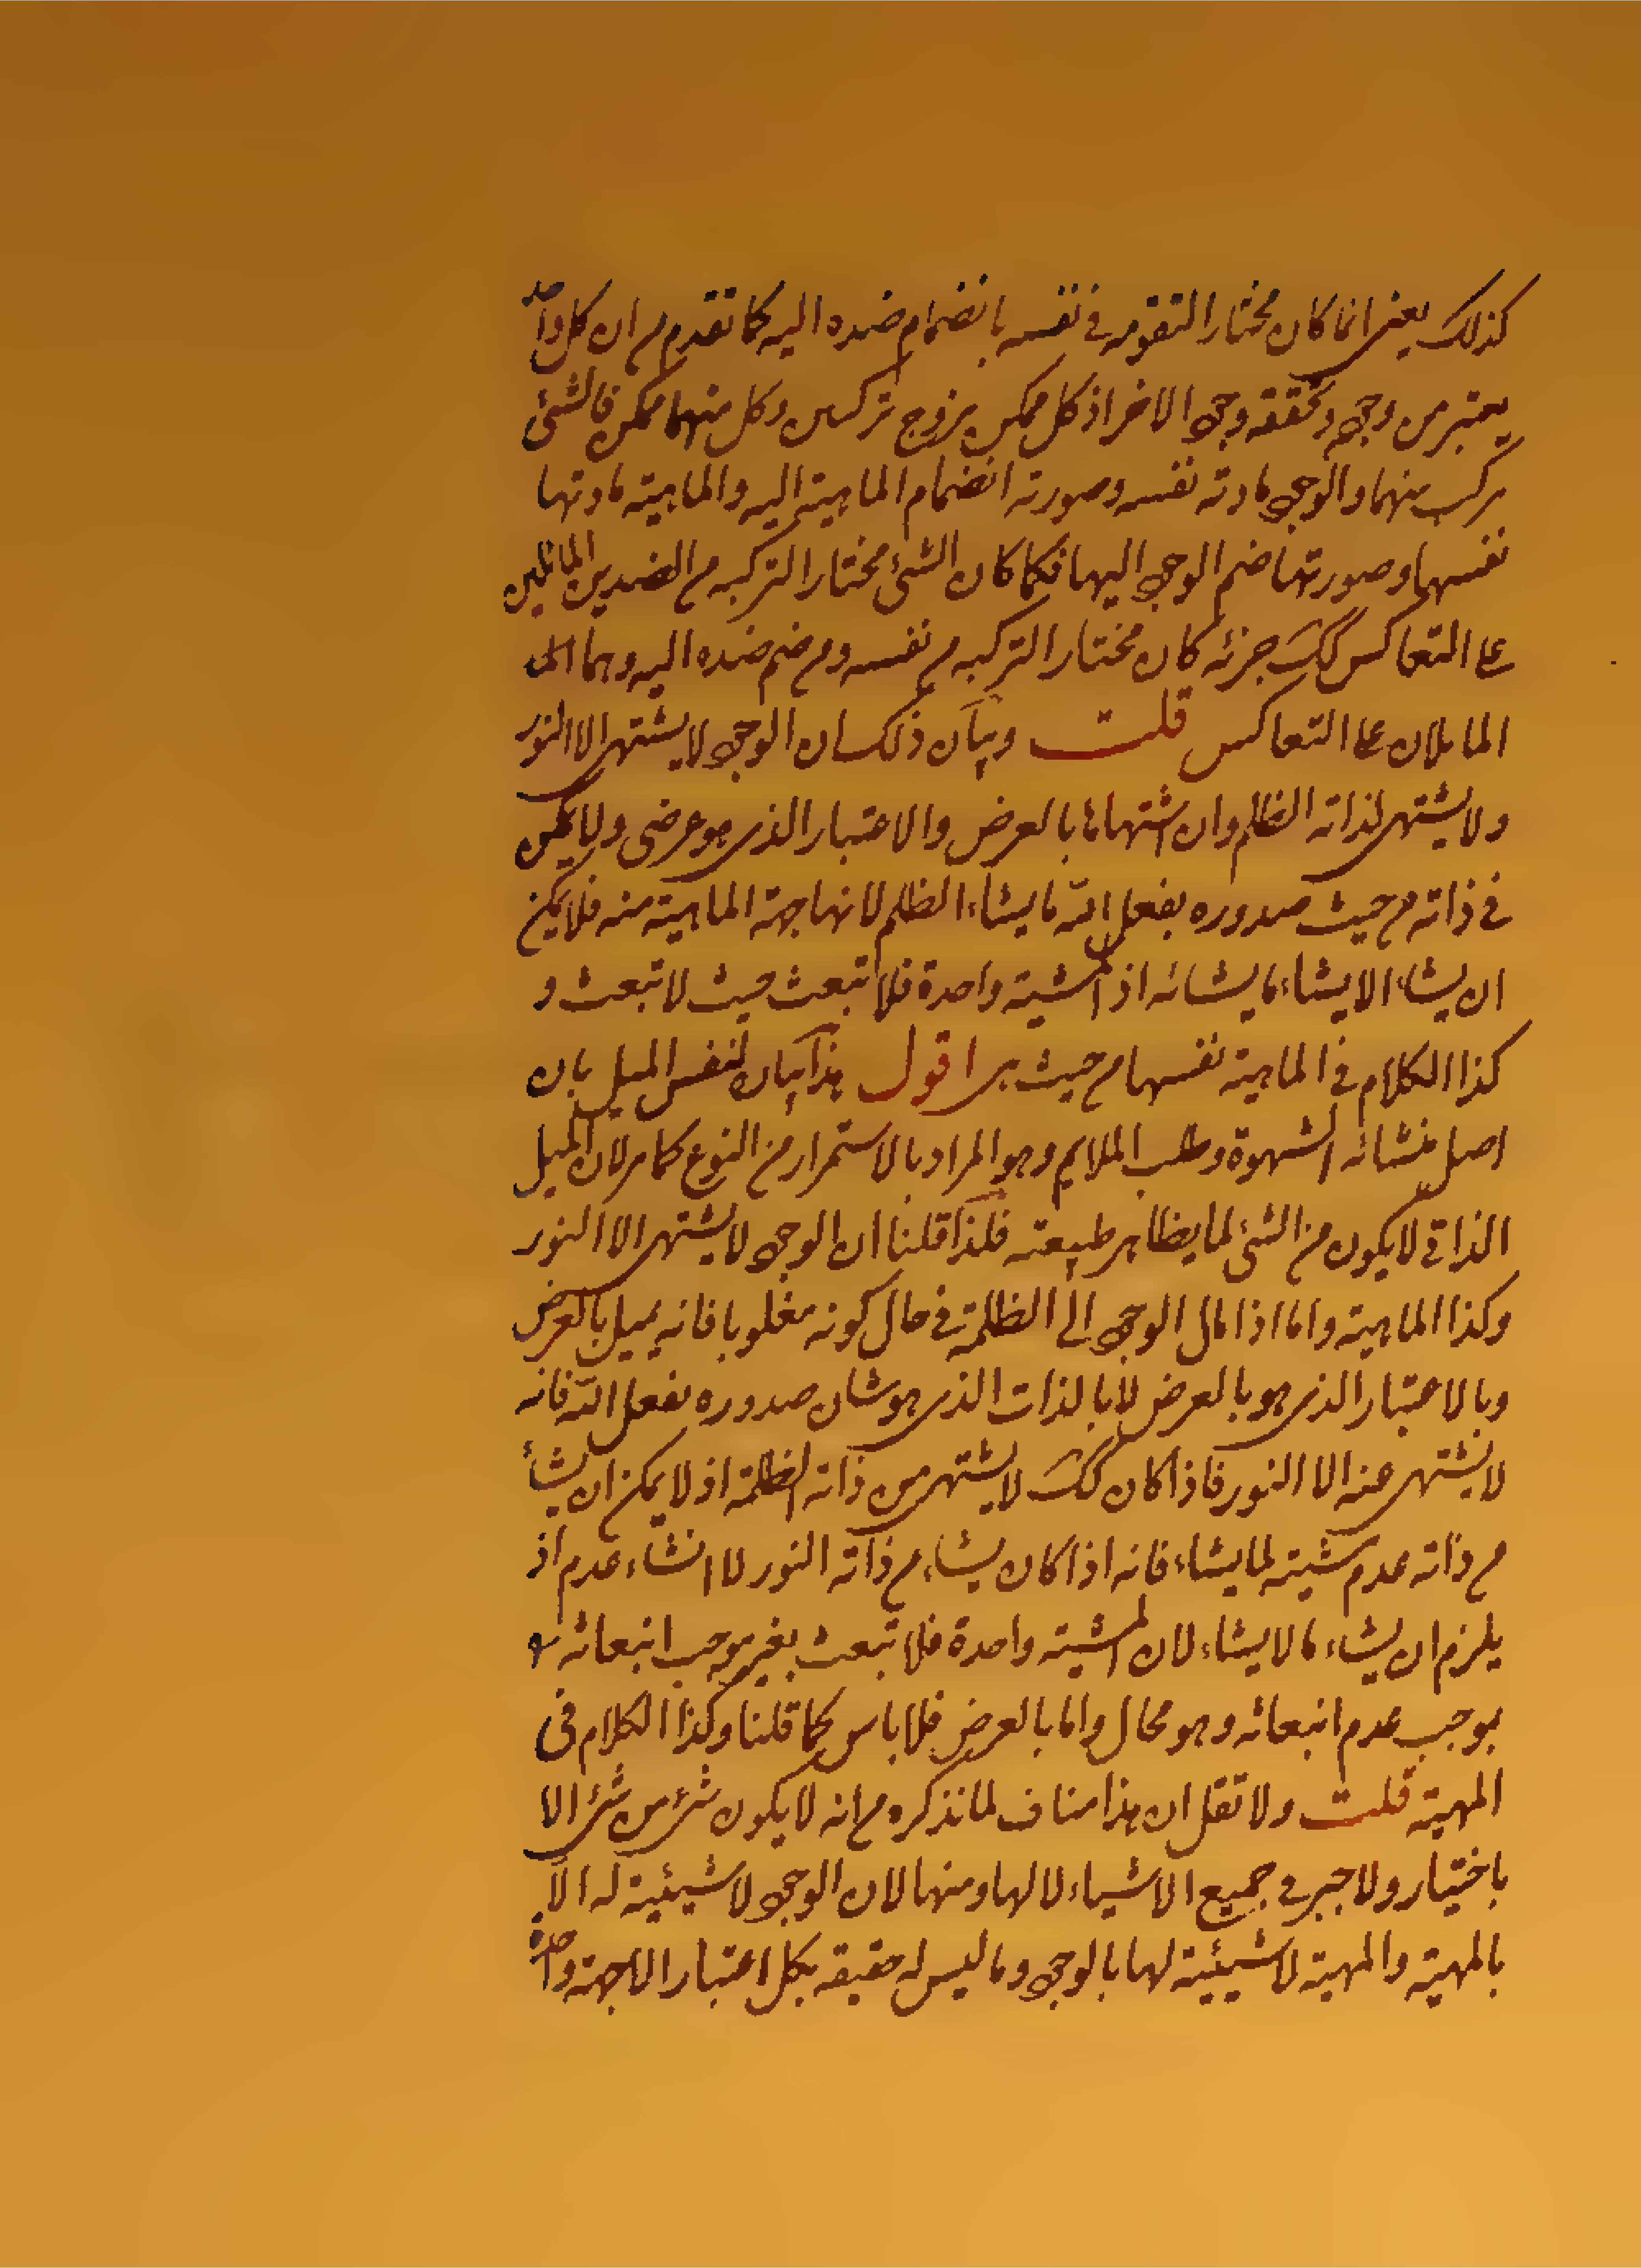 كذلك يعنى انما كان مختارا لتقومه فى نفسه بانضمام ضده اليه كما تقدم من ان كل واحد
يعتبر من وجوده وتحققه وجود الاخر اذ كل ممكن زوج تركيبى وكل منهما ممكن فالشئ
مركب منهما والوجود مادته نفسه وصورته انضمام الماهية اليه والماهية مادتها
نفسها وصورتها ضم الوجود اليها فكما كان الشئ مختارا لتركبه من الضدين المائلين
على التعاكس كك جزئه كان مختارا لتركبه من نفسه ومن ضم ضده اليه وهما
المايلان على التعاكس قلت وبيان ذلك ان الوجود لا يشتهى الا النور
ولا يشتهى لذاته الظلم وان اشتهاها بالعرض والاعتبار الذى هو عرضى ولا يمكن
فى ذاته من حيث صدوره بفعل الله ما يشاء الظلم لانها جهة الماهية منه فلا يمكن
ان يشاء الا يشاء ما يشائه اذ المشية واحدة فلا تبعث حيث لا تبعث و
كذا الكلام فى الماهية نفسها من حيث هى اقول هذا بيان لنفس الميل بان
اصل منشائه الشهوة وطلب الملايم وهو المراد بالاستمرار من النوع كما مر لان الميل
الذاتى لا يكون من الشئ لما يظاهر طبيعته فلذا قلنا ان الوجود لا يشتهى الا النور
وكذا الماهية واما اذا مال الوجود الى الظلمة فى حال كونه مغلوبا فانه يميل بالعرض
وبالاعتبار الذى هو بالعرض لا بالذات الذى هو شان صدوره بفعل الله فانه
لا يشتهى عنه الا النور فاذا كان كك لا يشتهى من ذاته الظلمة اذ لا يمكن ان يشأ
من ذاته عدم مشيته لما يشاء فانه اذا كان يشاء من ذاته النور لا انشاء عدم اذ
يلزم ان يشاء ما لا يشاء لان المشية واحدة فلا تبعث بغير موجب انبعاثه
بموجب عدم انبعاثه وهو محال واما بالعرض فلا باس كما قلنا وكذا الكلام فى
المهية قلت ولا تقل ان هذا مناف لما نذكره من انه لا يكون شئ من شئ الا
باختيار ولا جبر فى جميع الاشياء لا لها ومنها لان الوجود لا شيئية له الا
بالمهية والمهية لا شيئية لها بالوجود وما ليس له حقيقه بكل اعتبار الا جهة واحدة